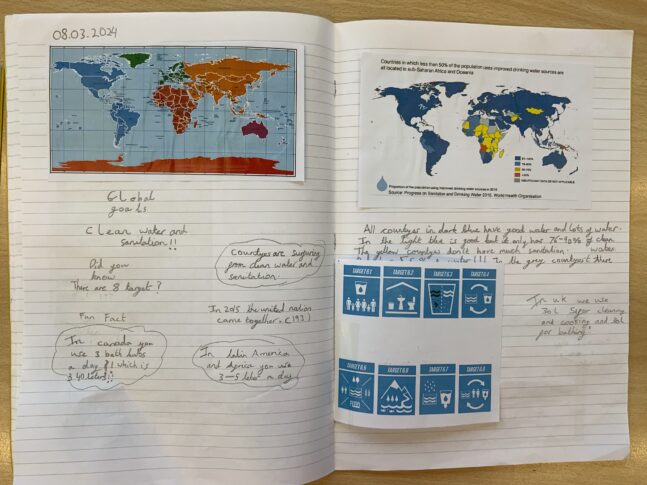 08.03.2024
Global
goals
Clean water and
sanitation!!
Did you
know
There are 8 target?
Fun Fact
In canada you
use 3 bath tubs
a day!! which is
340 liters!!
Countryes are
from clean water and
sanitation.
In 2015 the united nation
came together. (193)
In Latin America
and Africa you use
3-5 liter a day
Countries in which less than 50% of the population uses improved drinking water sources are
all located in sub-Saharan Africa and Oceania
91-100%
76-90%
50-75%
<50%
INSUFFICIENT DATA OR NOT APPLICABLE
Proportion of the population using improved drinking water sources in 2015
Source: Progress on Sanitation and Drinking Water 2015, World Health Organisation
All countries in dark blue have good water and lots of water.
In the light blue is good but it only has 76-90% of clean
water
The yellow countryes don't have much sanitation.
In the grey countryes there
TARGET 6.1
TARGET 6.2
TARGET 6.3
TARGET 6.4
TARGET 6.5
TARGET 6.6
TARGET 6.A
TARGET 6.B
In uk we use
30L for cleaning
and cooking and
for bathing